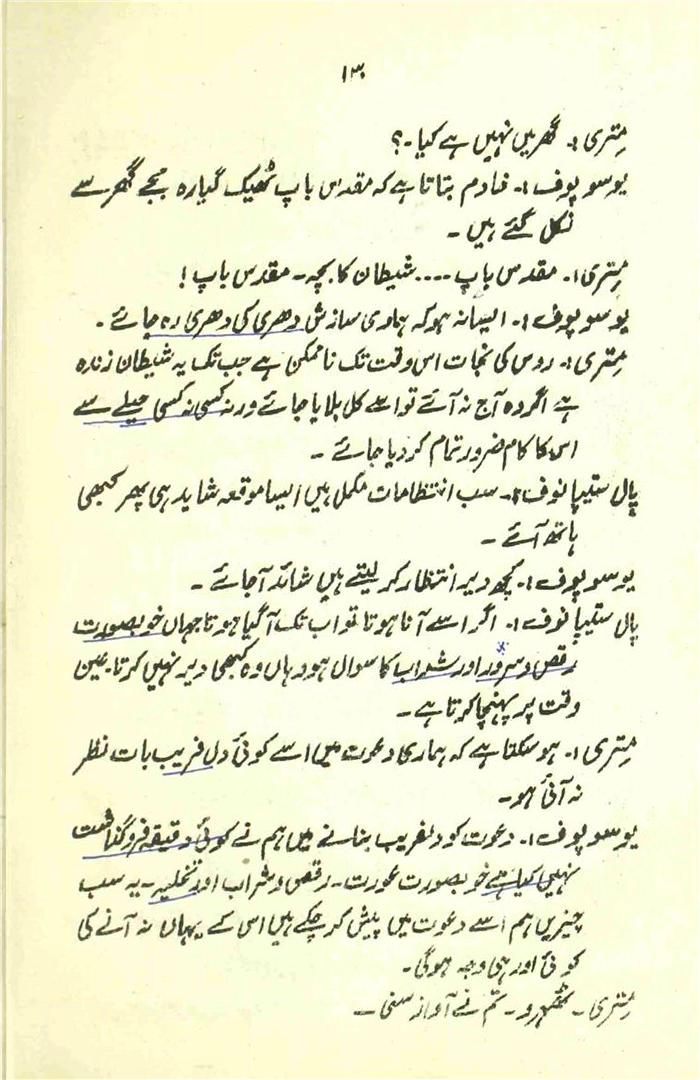 ۱۳
متری :۔ گھر میں نہیں ہے کیا ۔؟
یوسوپوف :۔ خادم بتاتا ہے کہ مقدس باپ ٹھیک گیارہ بجے گھر سے
نکل گئے ہیں ۔
متری :۔ مقدس باپ .... شیطان کا بچہ ۔ مقدس باپ !
یوسوپوف :۔ ایسا نہ ہو کہ ہماری سازش دھری کی دھری رہ جائے ۔
متری :۔ روس کی نجات اس وقت تک ناممکن ہے جب تک یہ شیطان زندہ
ہے اگر وہ آج نہ آئے تو اسے کل بلایا جائے ورنہ کسی نہ کسی حیلے سے
اس کا کام ضرور تمام کر دیا جائے ۔
پال ستیپانوف :۔ سب انتظامات مکمل ہیں ایسا موقعہ شاید ہی پھر کبھی
ہاتھ آئے ۔
یوسوپوف :۔ کچھ دیر انتظار کر لیتے ہیں شائد آجائے ۔
پال ستیپانوف :۔ اگر اسے آنا ہوتا تو اب تک آگیا ہوتا جہاں خوبصورت
رقص و سرور اور شراب کا سوال ہو وہاں وہ کبھی دیر نہیں کرتا۔ عین
وقت پر پہنچا کرتا ہے ۔
متری :۔ ہوسکتا ہے کہ ہماری دعوت میں اسے کوئی دل فریب بات نظر
نہ آئی ہو ۔
یوسوپوف :۔ دعوت کو دلفریب بنانے میں ہم نے کوئی دقیقہ فروگذاشت
نہیں کیا ہے خوبصورت عورت ۔ رقص و شراب اور تخلیہ ۔ یہ سب
چیزیں ہم اسے دعوت میں پیش کر چکے ہیں اس کے یہاں نہ آنے کی
کوئی اور ہی وجہ ہوگی ۔
متری ۔ ٹھہرو ۔ تم نے آواز سنی ۔